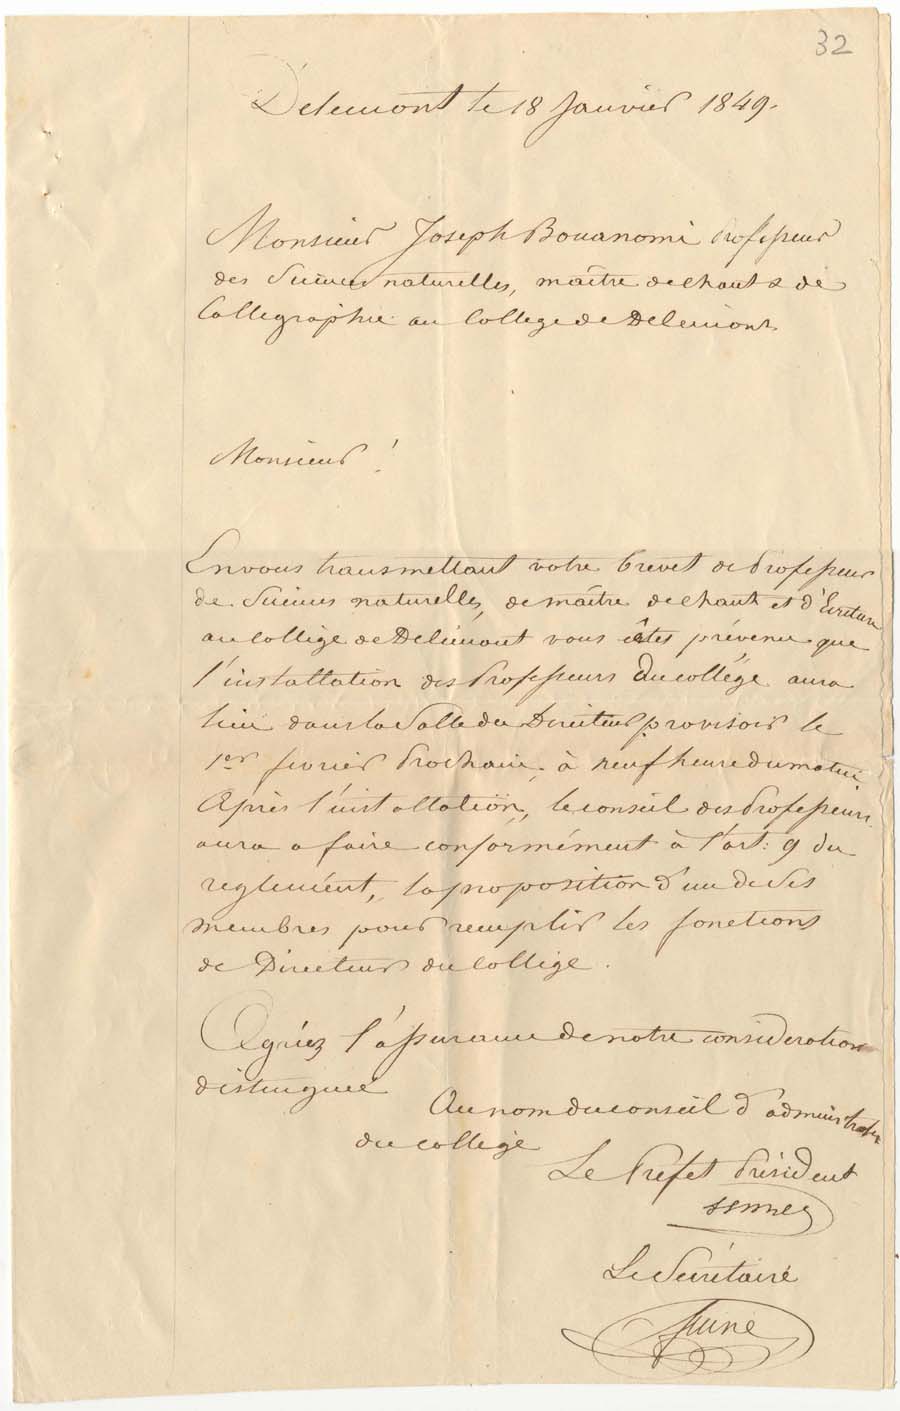 32
Délemont le 18 Janvier 1849.
Monsieur Joseph Bonanomi Professeur
des Sciences naturelles, maître de chant & de
Callegraphie au College de Delemont
Monsieur !
En vous transmettant votre brevet de Professeur
de Sciences naturelles, de maître de chant et d'Ecriture
au collége de Delémont vous êtes prévenu que
l'installation des Professeurs du collége aura
lieu dans la Salle du Directeur provisoir le
1er fevrier Prochain, à neuf heure du matin
Après l'installation, le conseil des Professeurs
aura a faire conformément à l'art: 9 du
reglement, la proposition d'un de ses
membres pour remplir les fonctions
de Directeur du collége.
Agréez l'assurance de notre consideration
distinguée
Au nom du conseil d'administration
du collége
Le Préfet Président
Le Secrétaire